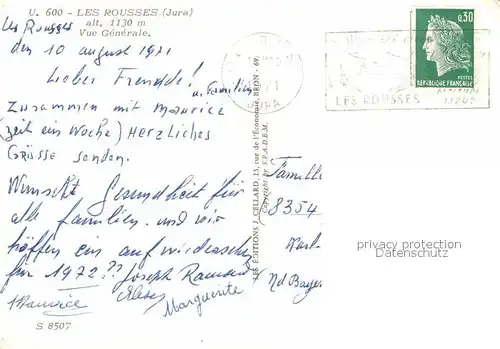 U. 600 - LES ROUSSES (Jura)
alt. 1130 m
Vue Générale.
Les Rousses
den 10 august 1971
Lieber Freunde!
u. Familien
Zusammen mit Maurice
(zeit ein Woche) Herzliches
Grüsse senden.
Wünscht Gesundheit für
alle familien. und wir
höffen ein auf wiedersehn
für 1972?? Joseph
Maurice
Marguerite
S 8507
LES ÉDITIONS J. CELLARD, 13, rue de l'Économie, BRON - 69.
Copyright by S.P.A.D.E.M.
JURA
LES ROUSSES
0,30
POSTES
REPUBLIQUE FRANÇAISE
Famille
8354
Nd Bayer
privacy protection
Datenschutz